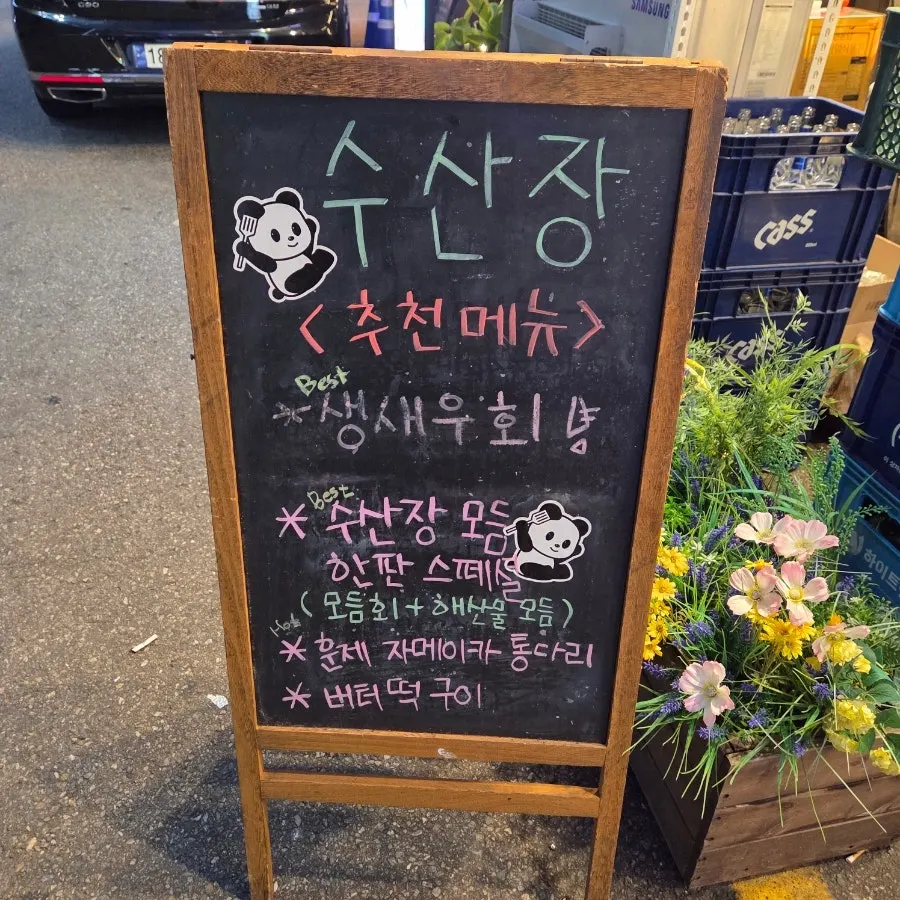 SAMSUNG
수산장
<추천메뉴>
Best
* 생새우회 냥
Best
* 수산장 모듬
한판 스페셜
(모듬회 + 해산물 모듬)
Hot
* 훈제 자메이카 통다리
* 버터떡구이
cass